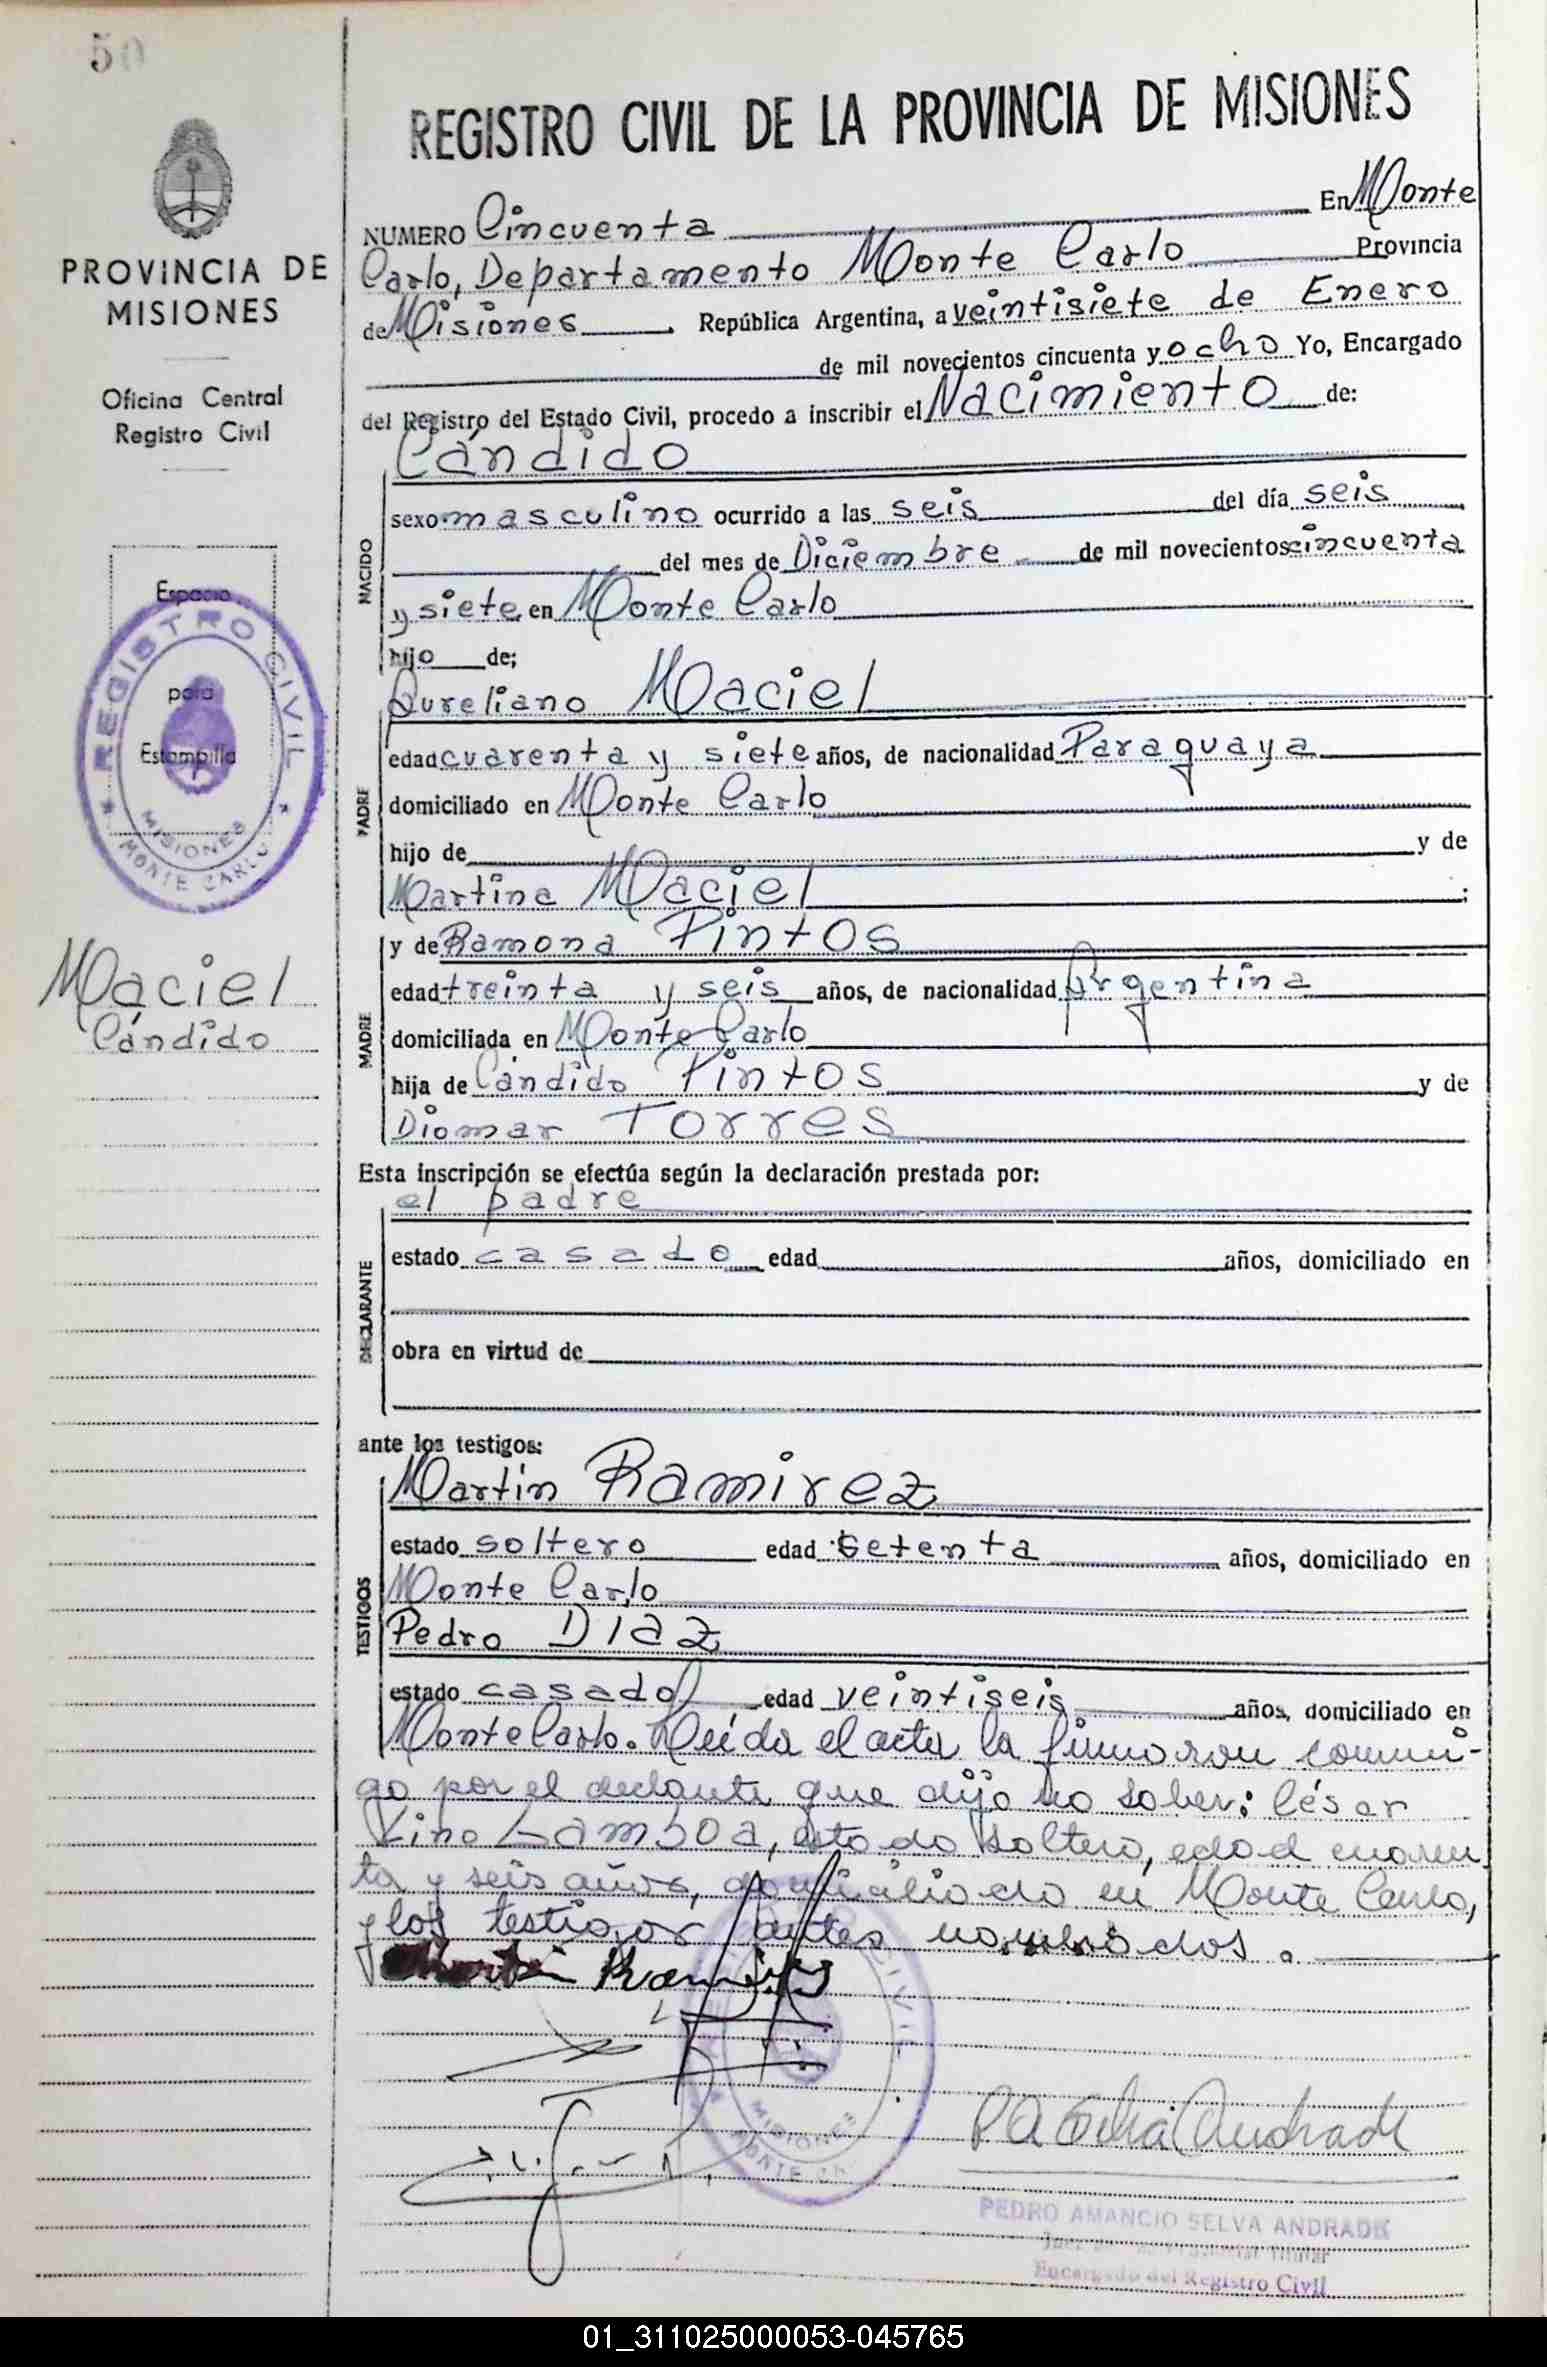 50
PROVINCIA DE
MISIONES
Oficina Central
Registro Civil
Espacio
para
Estampilla
REGISTRO CIVIL
MISIONES
MONTE CARLO
Maciel
Cándido
REGISTRO CIVIL DE LA PROVINCIA DE MISIONES
NUMERO Cincuenta En Monte
Carlo, Departamento Monte Carlo Provincia
de Misiones. República Argentina, a veintisiete de Enero
de mil novecientos cincuenta y ocho Yo, Encargado
del Registro del Estado Civil, procedo a inscribir el Nacimiento de:
Cándido
NACIDO
sexo masculino ocurrido a las seis del día seis
del mes de Diciembre de mil novecientos cincuenta
y siete en Monte Carlo
hijo de;
Aureliano Maciel
PADRE
edad cuarenta y siete años, de nacionalidad Paraguaya
domiciliado en Monte Carlo
hijo de y de
Martina Maciel;
MADRE
y de Ramona Pintos
edad treinta y seis años, de nacionalidad Argentina
domiciliada en Monte Carlo
hija de Cándido Pintos y de
Diomar Torres
Esta inscripción se efectúa según la declaración prestada por:
el padre
DECLARANTE
estado casado edad años, domiciliado en
obra en virtud de
ante los testigos:
Martín Ramirez
TESTIGOS
estado soltero edad setenta años, domiciliado en
Monte Carlo
Pedro Diaz
estado casado edad veintiseis años, domiciliado en
Monte Carlo. Leída el acta la firmaron conmi-
go por el declante que dijo no saber: César
Lino Gamboa, estado soltero, edad cuaren
ta y seis años, domiciliado en Monte Carlo,
y los testigos antes nombrados.
Martin Ramirez
CIVIL
MISIONES
MONTE CA
PA Selva Andrade
PEDRO AMANCIO SELVA ANDRADE
Titular
Encargado del Registro Civil
01_311025000053-045765